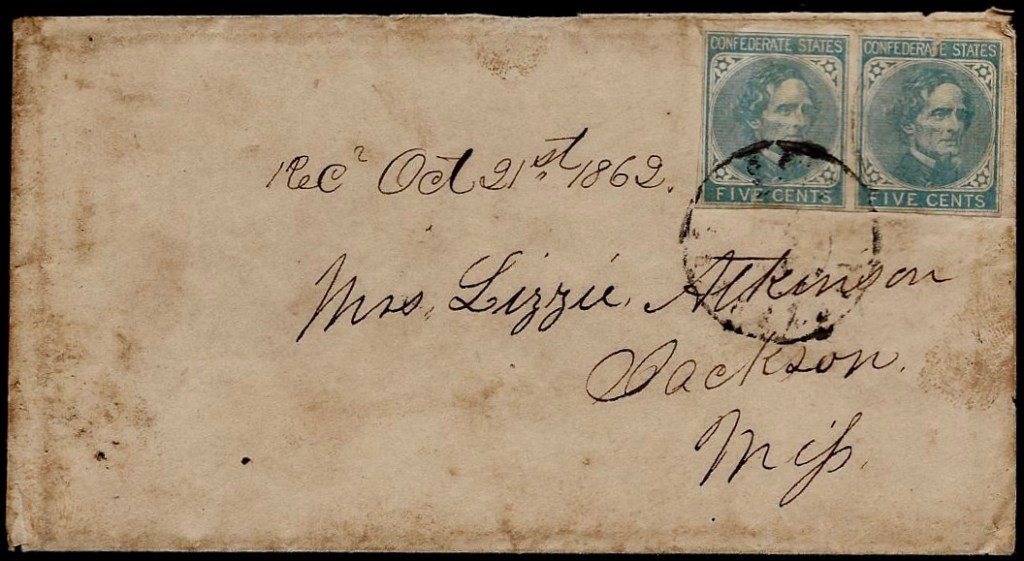 CONFEDERATE STATES CONFEDERATE STATES
FIVE CENTS FIVE CENTS
Rec^d Oct 21st 1862.
Mrs. Lizzie. Atkinson
Jackson.
Miss.